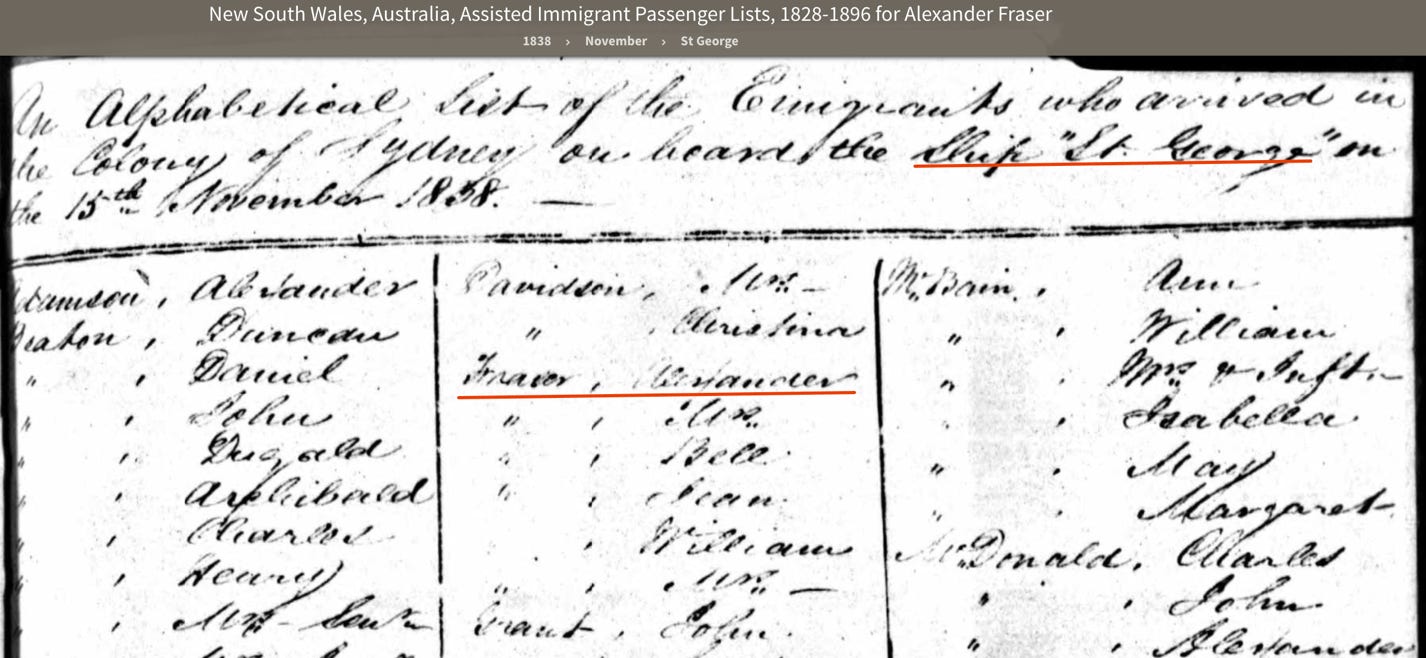 New South Wales, Australia, Assisted Immigrant Passenger Lists, 1828-1896 for Alexander Fraser
1838 › November › St George
An Alphabetical List of the Emigrants who arrived in
the Colony of Sydney on board the Ship "St. George" on
the 15th November 1838. —
Adamson, Alexander
Beaton, Duncan
" , Daniel
" , John
" , Dugald
" , Archibald
" , Charles
" , Henry
" , Mrs - Senr
Davidson, Mrs -
" , Christina
Fraser, Alexander
" , Mrs.
" , Bell
" , Jean
" , William
" , Mrs. —
Grant, John.
McBain, Ann
" , William
" , Mrs & Inft.
" , Isabella
" , May
" , Margaret
McDonald, Charles
" , John
" , Alexander